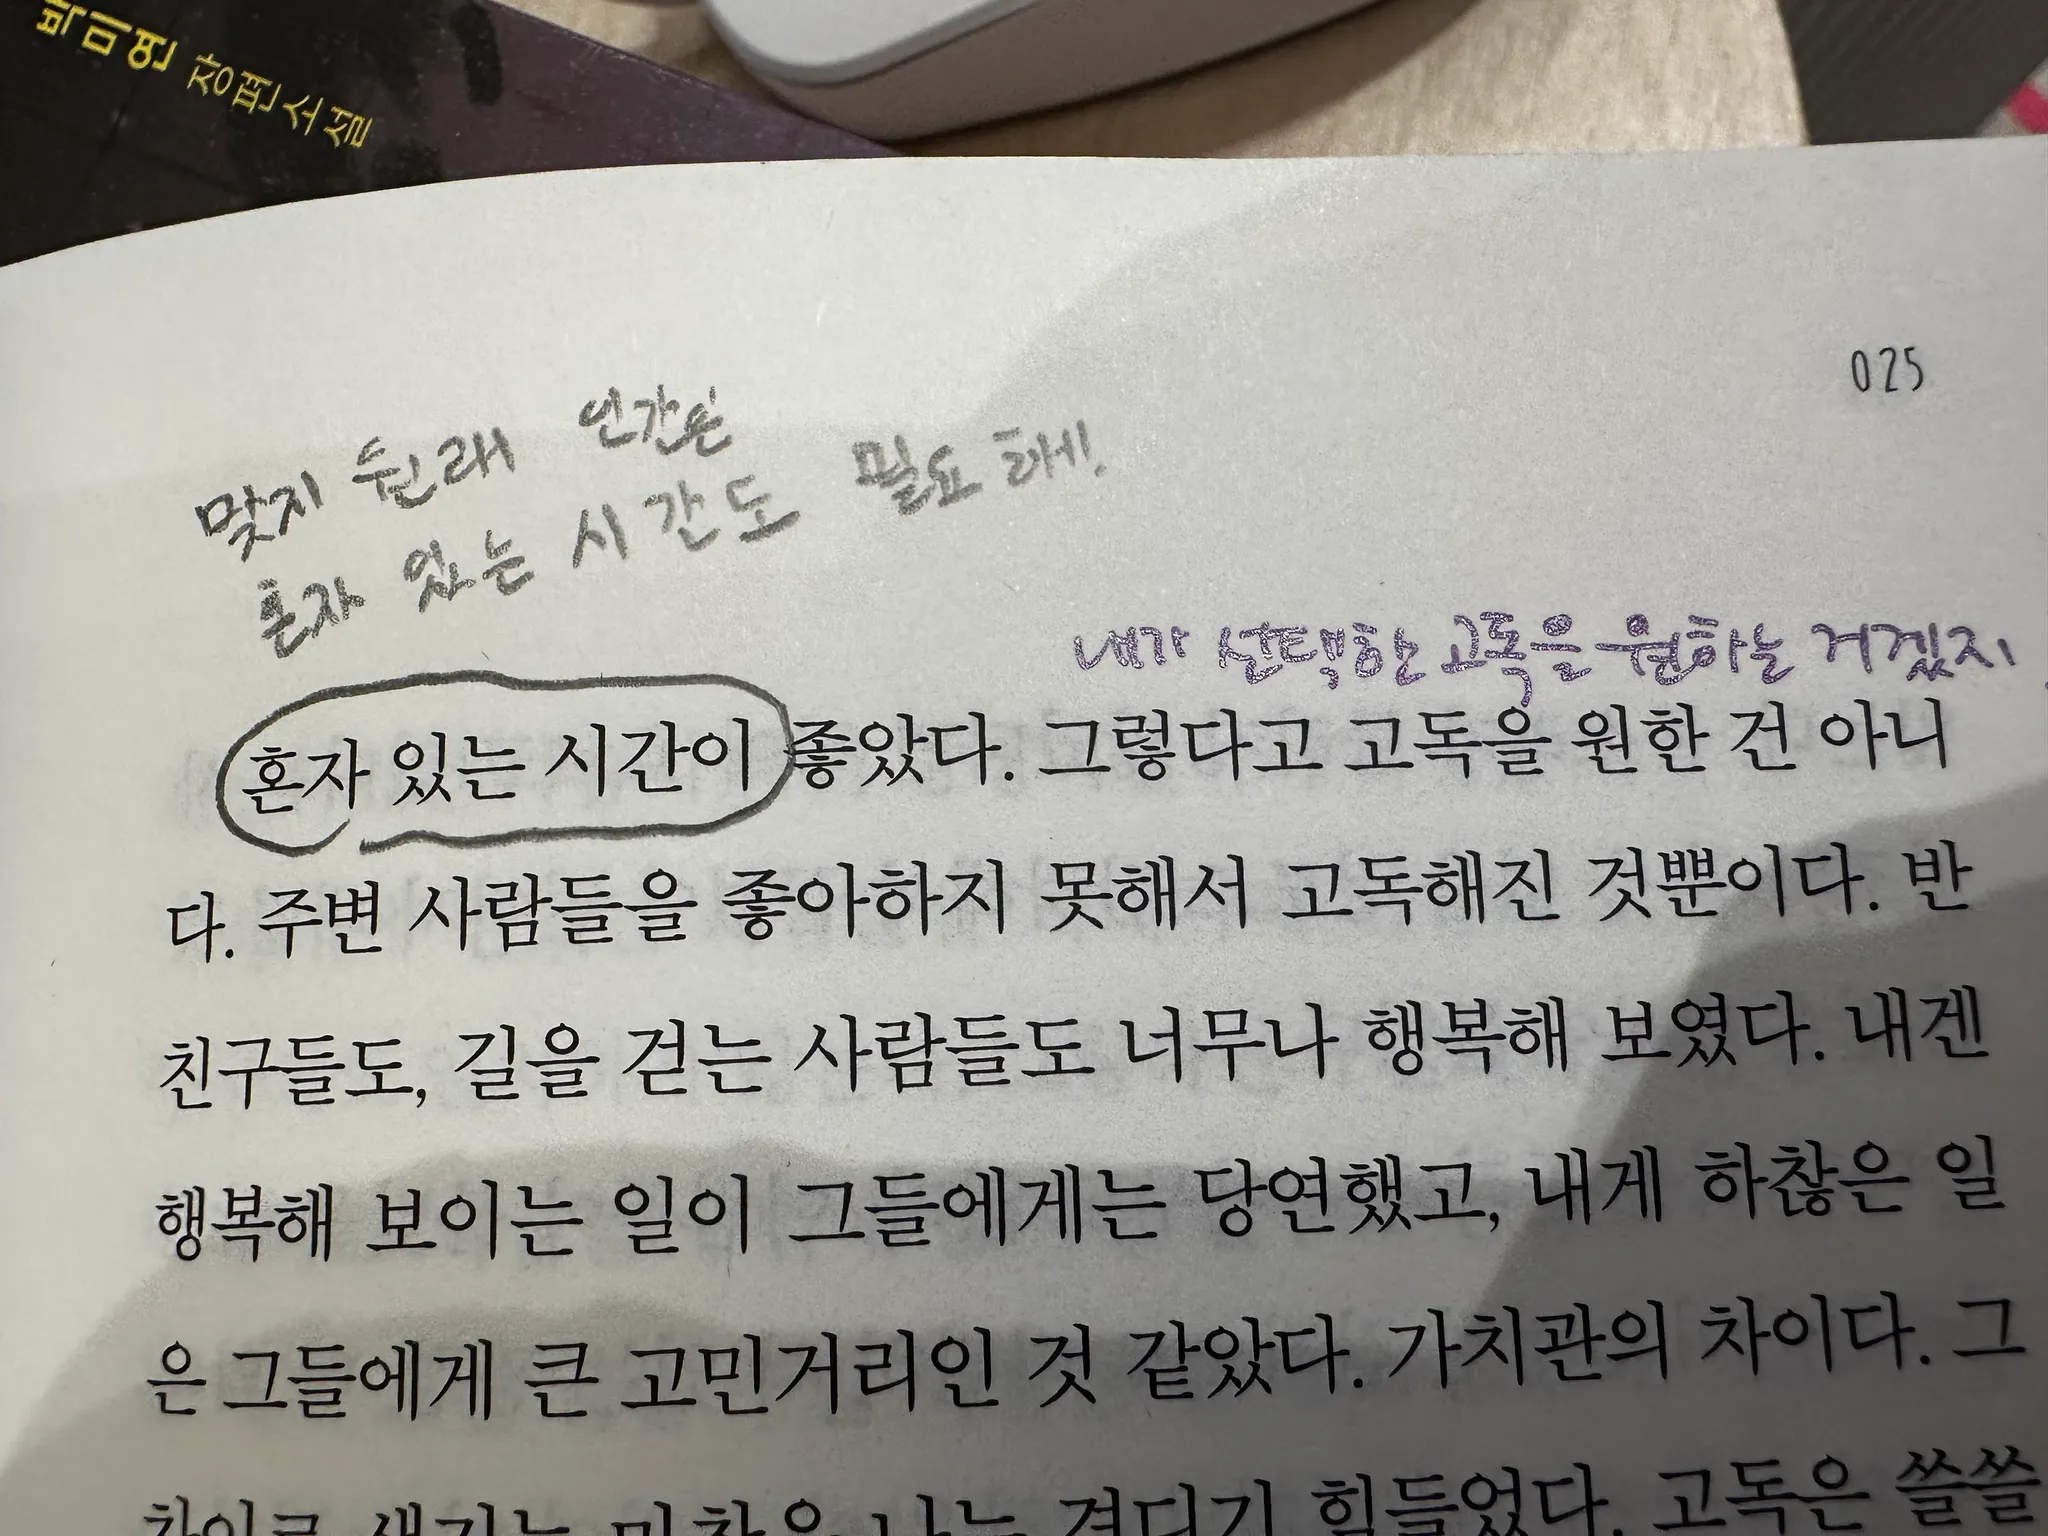 박미연 장편소설
025
맞지 원래 인간은
혼자 있는 시간도 필요해!
내가 선택한 고독을 원하는 거겠지
혼자 있는 시간이 좋았다. 그렇다고 고독을 원한 건 아니
다. 주변 사람들을 좋아하지 못해서 고독해진 것뿐이다. 반
친구들도, 길을 걷는 사람들도 너무나 행복해 보였다. 내겐
행복해 보이는 일이 그들에게는 당연했고, 내게 하찮은 일
은 그들에게 큰 고민거리인 것 같았다. 가치관의 차이다. 그
차이로 생기는 마찰은 나는 견디기 힘들었다. 고독은 쓸쓸